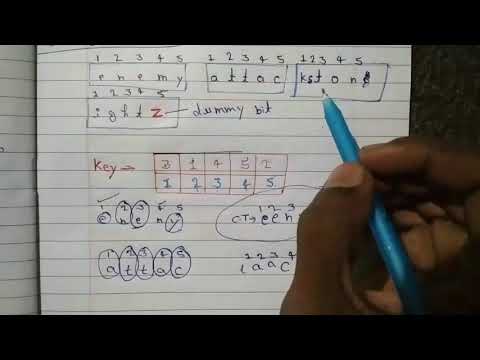 1 2 3 4 5   1 2 3 4 5   1 2 3 4 5
e n e m y   a t t a c   k s t o n e
1 2 3 4 5
i g h t z → dummy bit
Key → 3 1 4 5 2
1 2 3 4 5
1 2 3 4 5   1 2 3
e n e m y   CT → e e n
1 2 3 4 5   1 2 3 4
a t t a c   t a a c